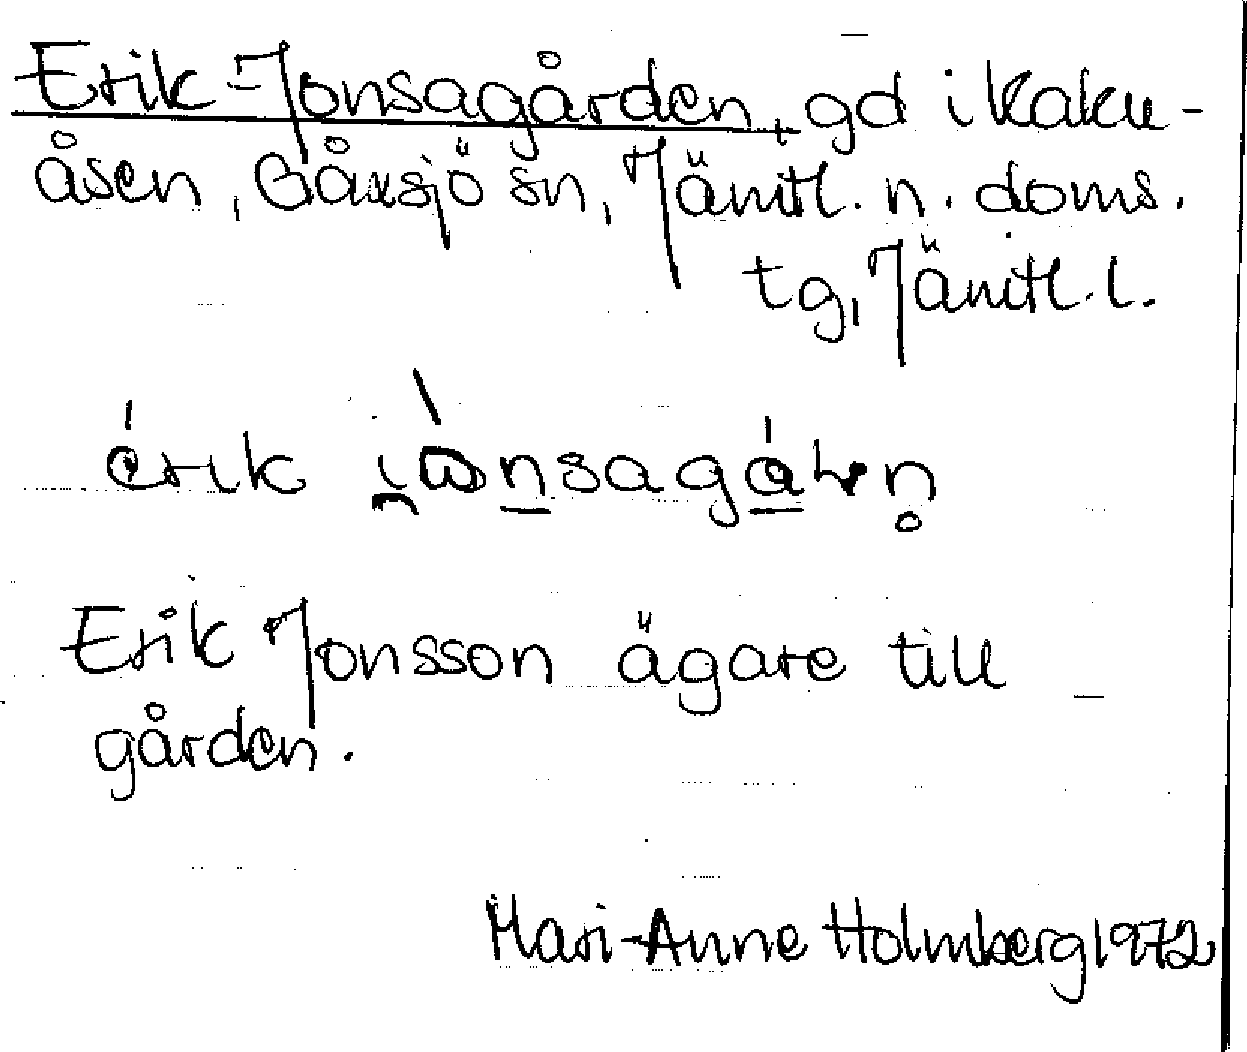 Erik-Jonsagården, gd i Kaku-
åsen, Gåxsjö sn, Jämtl. n. doms.
tg, Jämtl. l.
érik i̯ònsagáɽn̥
Erik Jonsson ägare till
gården.
Mari-Anne Holmberg 1972